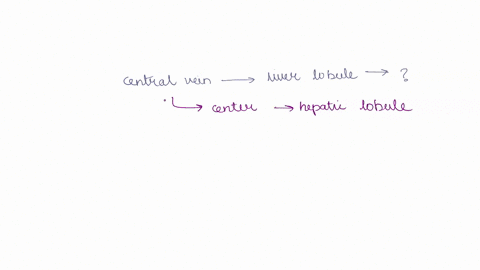 central vein → liver lobule → ?
↳ center → hepatic lobule